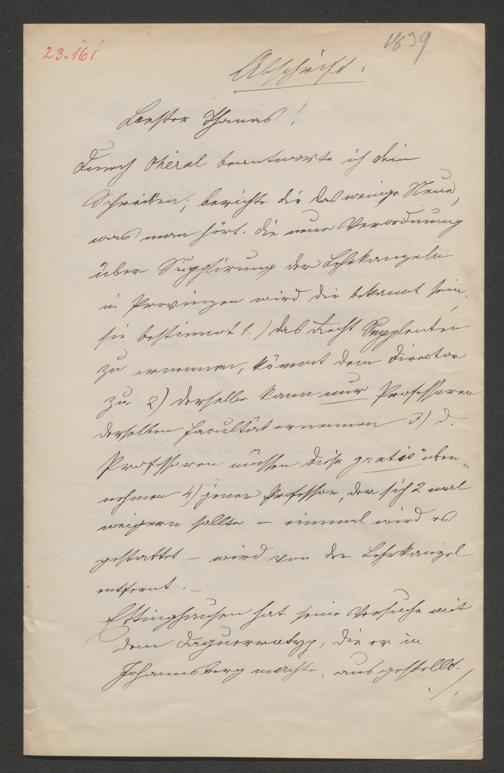 23.161
1839
Abschrift.
Bester Thomas!
Durch Oheral beantworte ich dein
Schreiben; berichte dir das wenige Neue,
was man hört. Die neue Verordnung
über Supplirung der Lehrkanzeln
in Provinzen wird dir bekannt sein,
sie bestimmt 1.) das Recht Supplenten
zu ernennen, kömmt dem Director
zu 2) derselbe kann nur Professoren
derselben Facultät ernennen 3) d.
Professoren müssen diese gratis über-
nehmen 4) jener Professor, der sich 2 mal
weigern sollte – einmal wird es
gestattet – wird von der Lehrkanzel
entfernt. –
Ettinghausen hat seine Versuche mit
dem Daguerrotyp, die er in
Johannsberg machte, ausgestellt.
./.